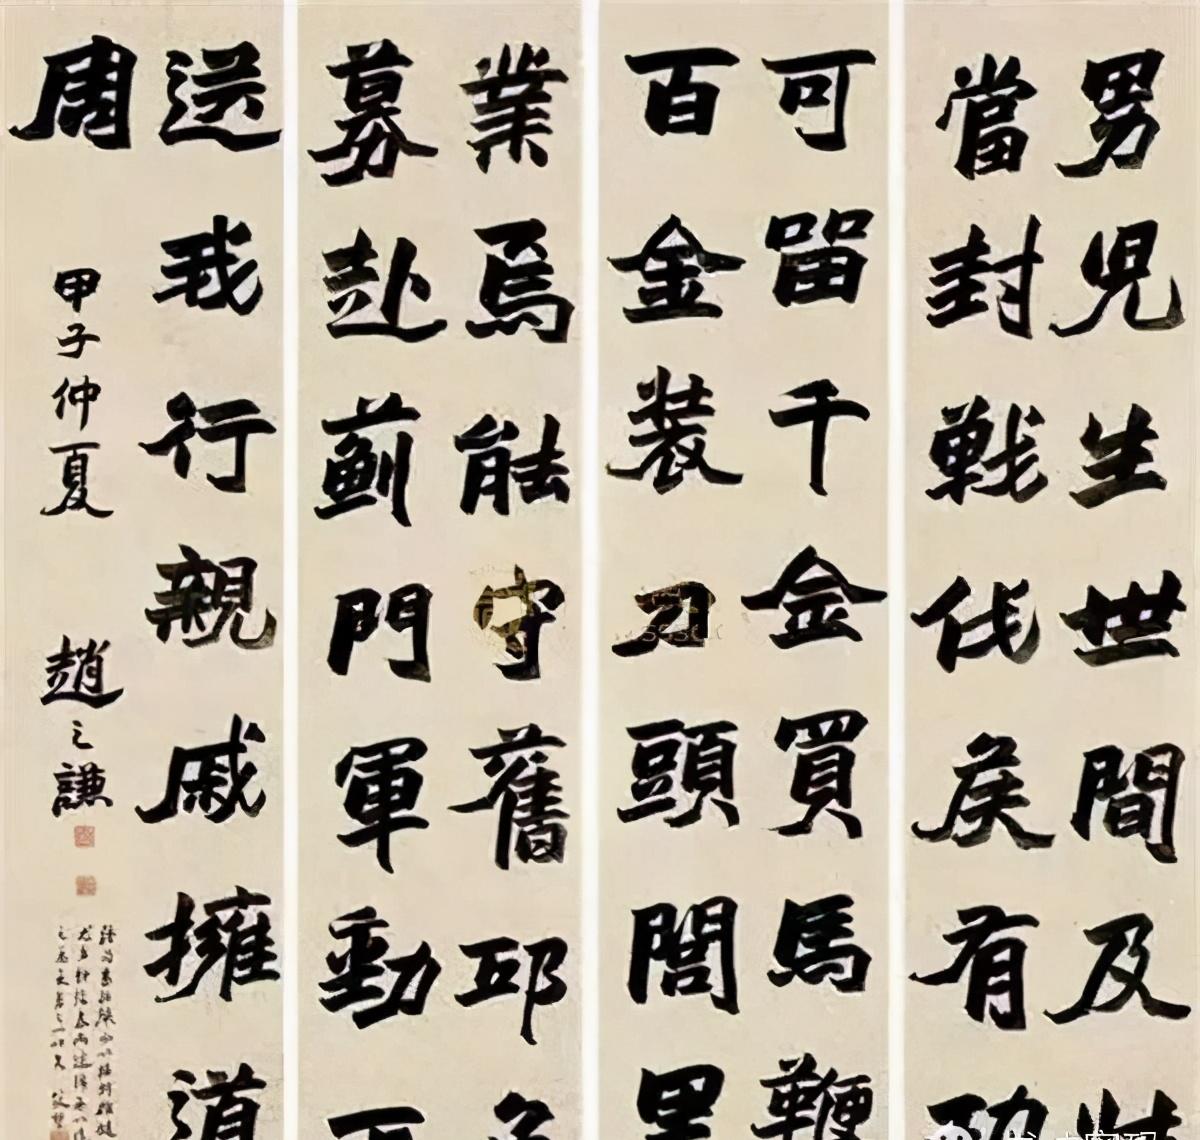 男兒生世間及壯
當封戰伐矦有功
可留千金買馬鞭
百金裝刀頭閭里
業焉能守舊邱召
募赴薊門軍動不
送我行親戚擁道
周
甲子仲夏
趙之謙